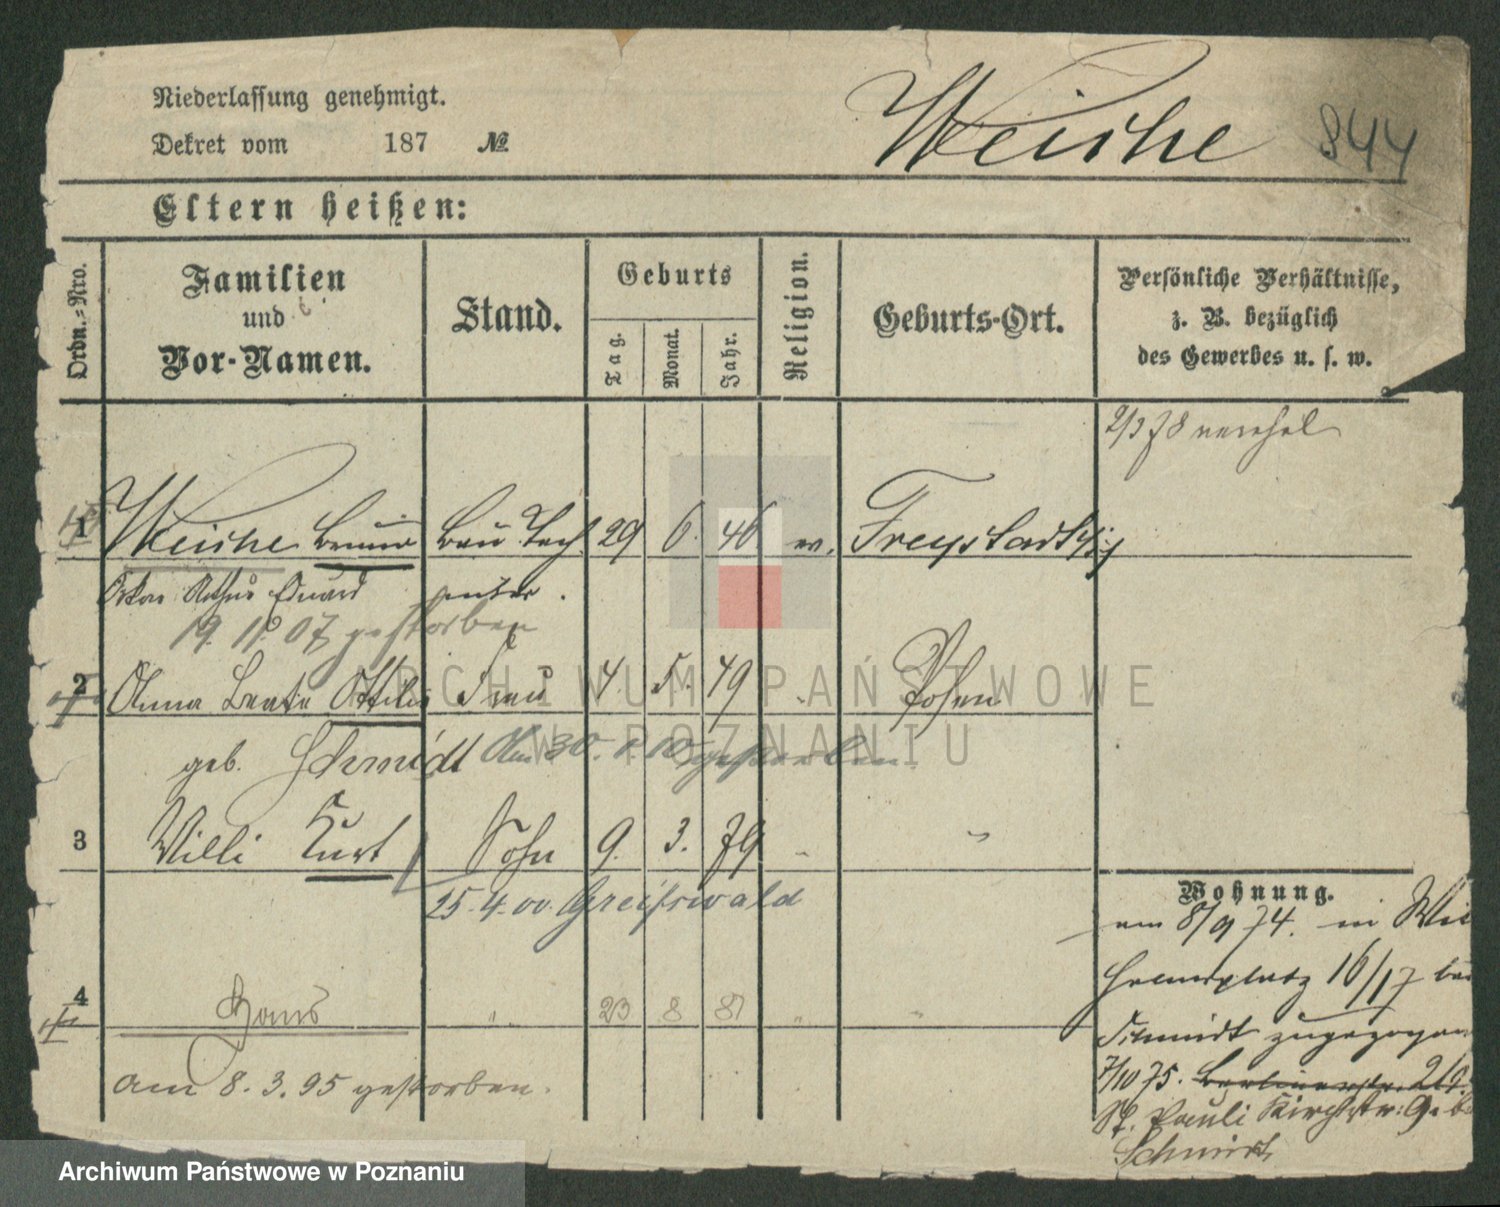 Niederlassung genehmigt.
Dekret vom 187 №
Weiche 844
Eltern heißen:
Ordn.-Nro.
Familien und Vor-Namen.
Stand.
Geburts
Tag.
Monat.
Jahr.
Religion.
Geburts-Ort.
Persönliche Verhältnisse,
z. B. bezüglich
des Gewerbes u. s. w.
2/3 78
1 Weiche Bruno Bau Tech 29 6. 46 ev. Freystadt
Oskar Arthur Eduard
19. 11. 07 gestorben
2 Anna Beate Ottilie Frau 4. 5. 49 Posen
geb. Schmidt Am 30. 1. 10 gestorben.
3 Willi Kurt Sohn 9. 3. 79 - "
25. 4. 00. Greifswald
4 Hans " 23 8 81 " "
am 8. 3. 95 gestorben.
Wohnung.
am 8/9 74. in Wil
helmsplatz 16/17 bei
Schmidt zugezogen
7/10 75. Berlinerstr.
St. Pauli Kirchstr: 9. b
Schmidt
ARCHIWUM PAŃSTWOWE
W POZNANIU
Archiwum Państwowe w Poznaniu